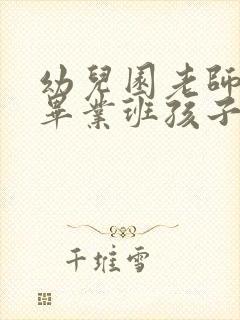 幼兒園老師
畢業班孩子
千堆雪